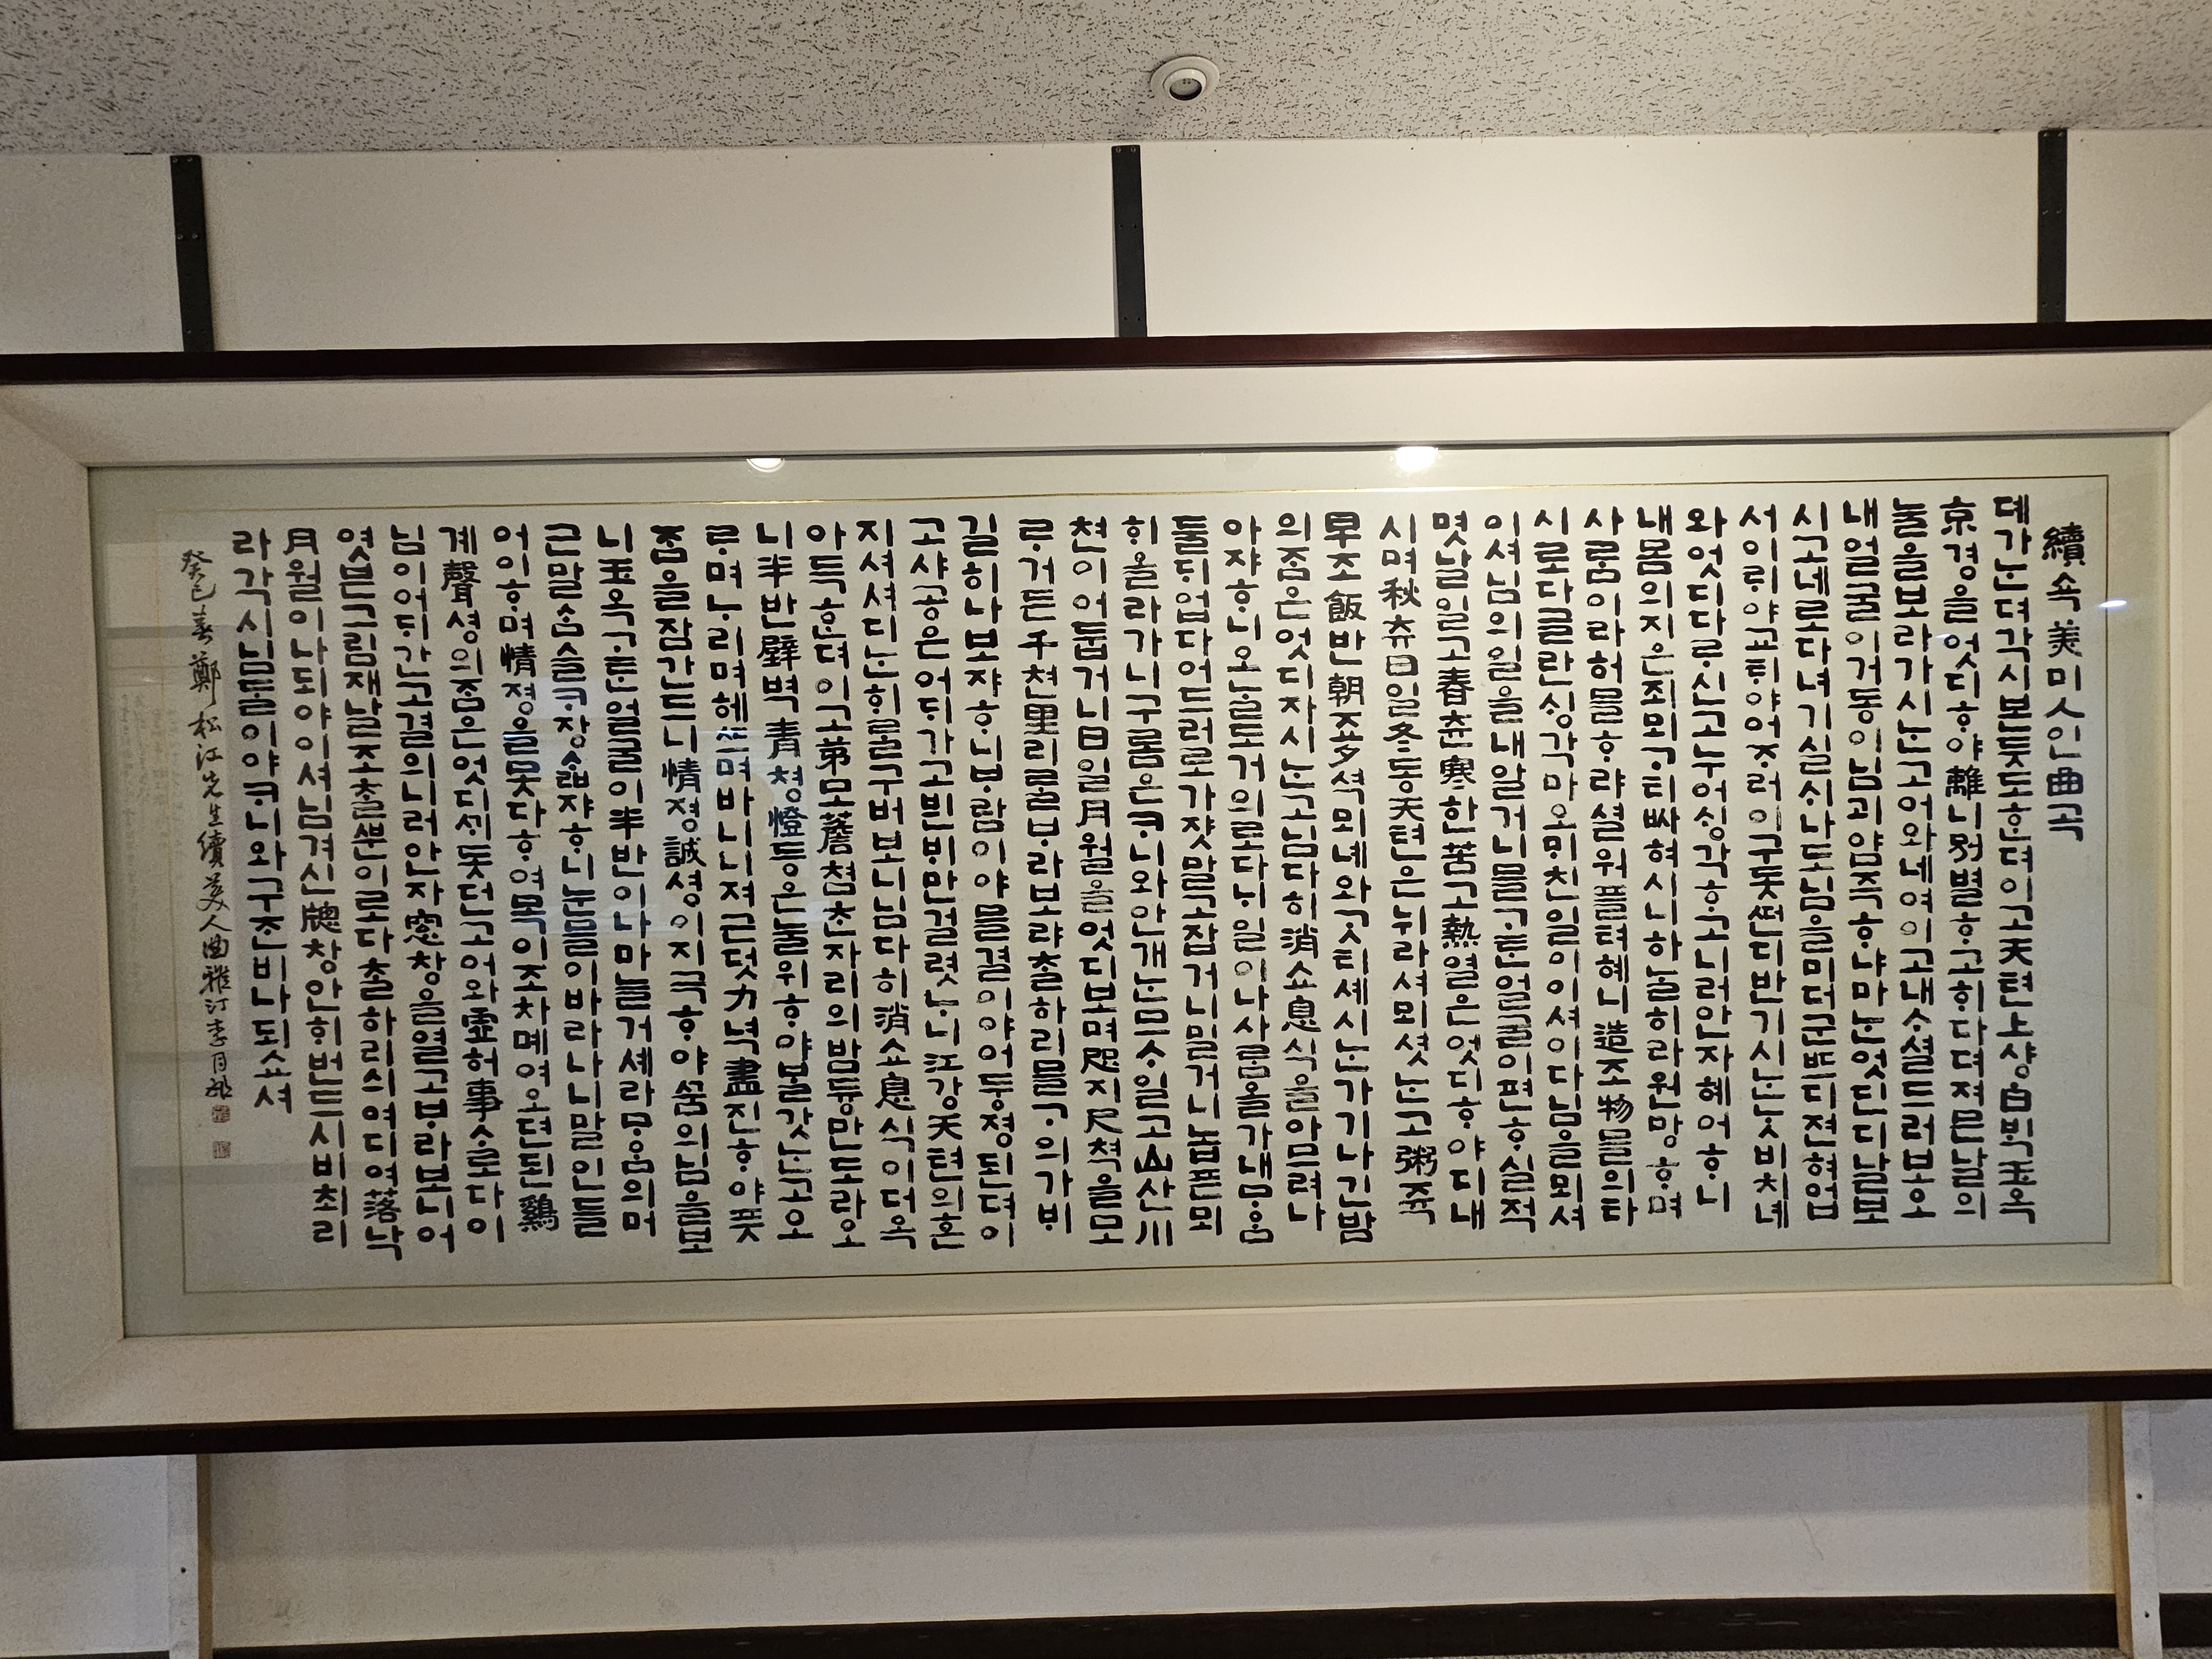 續쇽美미人인曲곡
뎨가ᄂᆞᆫ뎌각시본듯도ᄒᆞᆫ뎌이고天텬上샹白ᄇᆡᆨ玉옥
京경을엇디ᄒᆞ야離니別별ᄒᆞ고ᄒᆡ다뎌져믄날의
눌을보라가시ᄂᆞᆫ고어와네여이고내ᄉᆞ셜드러보오
내얼굴이거동이님괴얌즉ᄒᆞ냐마ᄂᆞᆫ엇딘디날보
시고네로다녀기실ᄉᆡ나도님을미더군ᄠᅳ디젼혀업
서이ᄅᆡ야교ᄐᆡ야어ᄌᆞ러이구돗ᄯᅥᆫ디반기시ᄂᆞᆫᄂᆞᆺ비치녜
와엇디다ᄅᆞ신고누어ᄉᆡᆼ각ᄒᆞ고니러안자혜여ᄒᆞ니
내몸의지은죄뫼ᄀᆞ티ᄡᅡ혀시니하ᄂᆞᆯ히라원망ᄒᆞ며
사ᄅᆞᆷ이라허믈ᄒᆞ랴셜워플텨혜니造조物믈의타
시로다글란ᄉᆡᆼ각마오ᄆᆡ친일이이셔이다님을뫼셔
이셔님의일을내알거니믈ᄀᆞᄐᆞᆫ얼굴이편ᄒᆞ실적
몃날일고春츈寒한苦고熱열은엇디ᄒᆞ야디내
시며秋츄日일冬동天텬은뉘라셔뫼셧ᄂᆞᆫ고粥쥭
早조飯반朝죠夕셕뫼녜와ᄀᆞᆺ티셰시ᄂᆞᆫ가기나긴밤
의ᄌᆞᆷ은엇디자시ᄂᆞᆫ고님다히消쇼息식을아므려나
아쟈ᄒᆞ니오ᄂᆞᆯ도거의로다ᄂᆡ일이나사ᄅᆞᆷ올가내ᄆᆞᄋᆞᆷ
둘ᄃᆡ업다어드러로가쟛말고잡거니밀거니놉픈뫼
히올라가니구롬은ᄏᆞ니와안개ᄂᆞᆫ므ᄉᆞ일고山산川
쳔이어둡거니日일月월을엇디보며咫지尺쳑을모
ᄅᆞ거든千쳔里리ᄅᆞᆯᄇᆞ라보랴ᄎᆞᆯ하리믈ᄀᆞ의가ᄇᆡ
길히나보쟈ᄒᆞ니ᄇᆞ람이야믈결이야어둥졍된뎌이
고샤공은어ᄃᆡ가고븬ᄇᆡ만걸렷ᄂᆞ니江강天텬의혼
자셔셔디ᄂᆞᆫᄒᆡᄅᆞᆯ구버보니님다히消쇼息식이더옥
아득ᄒᆞᆫ뎌이고茅모簷쳠ᄎᆞᆫ자리의밤듕만도라오
니半반壁벽青쳥燈등은눌위ᄒᆞ야ᄇᆞᆯ갓ᄂᆞᆫ고오
ᄅᆞ며ᄂᆞ리며헤ᄯᅳ며바니니져근덧力녁盡진ᄒᆞ야풋
ᄌᆞᆷ을잠간드니情졍誠셩이지극ᄒᆞ야ᄭᅮᆷ의님을보
니玉옥ᄀᆞᄐᆞᆫ얼굴이半반이나마늘거셰라ᄆᆞᄋᆞᆷ의머
근말ᄉᆞᆷ슬ᄏᆞ장ᄉᆞᆲ쟈ᄒᆞ니눈믈이바라나니말인들
어이ᄒᆞ며情졍을못다ᄒᆞ여목이조차몌여오뎐된鷄
계聲셩의ᄌᆞᆷ은엇디ᄭᆡ돗던고어와虛허事ᄉᆞ로다이
님이어ᄃᆡ간고결의니러안자窓창을열고ᄇᆞ라보니어
엿븐그림재날조ᄎᆞᆯᄲᅮᆫ이로다ᄎᆞᆯ하리싀여디여落낙
月월이나되야이셔님겨신牕창안ᄒᆡ번드시비최리
라각시님ᄃᆞᆯ이야ᄏᆞ니와구ᄌᆞᆫ비나되쇼셔
癸巳春鄭松江先生續美人曲雅汀李月